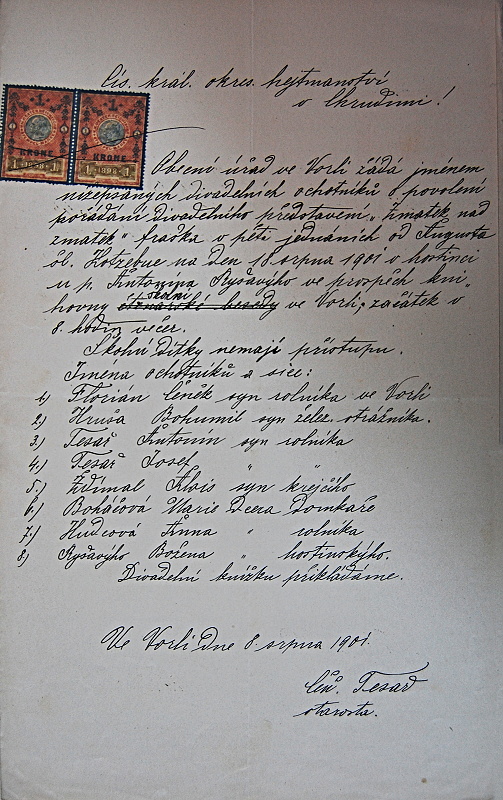 Cís. král. okres. hejtmanství
v Chrudimi!
1 1
KRONE KRONE
1 1898 1 1 1898 1
Obecní úřad ve Vorli žádá jménem
nížepsaných divadelních ochotníků o povolení
pořádání divadelního představení „Zmatek nad
zmatek“ fraška v pěti jednáních od Augusta
šl. Kotzebue na den 18 srpna 1901 v hostinci
u p. Antonína Ryšavýho ve prospěch kni-
školní
hovny čtenářské besedy ve Vorli, začátek v
8. hodin večer.
Školní dítky nemají přístupu.
Jména ochotníků a sice:
1.) Florián Čeněk syn rolníka ve Vorli
2.) Hruša Bohumil syn želez. strážníka.
3.) Tesař Antonín syn rolníka
4.) Tesař Josef „ „
5.) Zdímal Alois syn krejčího
6.) Boháčová Marie Dcera Domkaře
7.) Hudcová Anna „ rolníka
8.) Ryšavýho Božena „ hostinskýho.
Divadelní knížku přikládáme.
Ve Vorli dne 8. srpna 1901.
Čeň. Tesař
starosta.